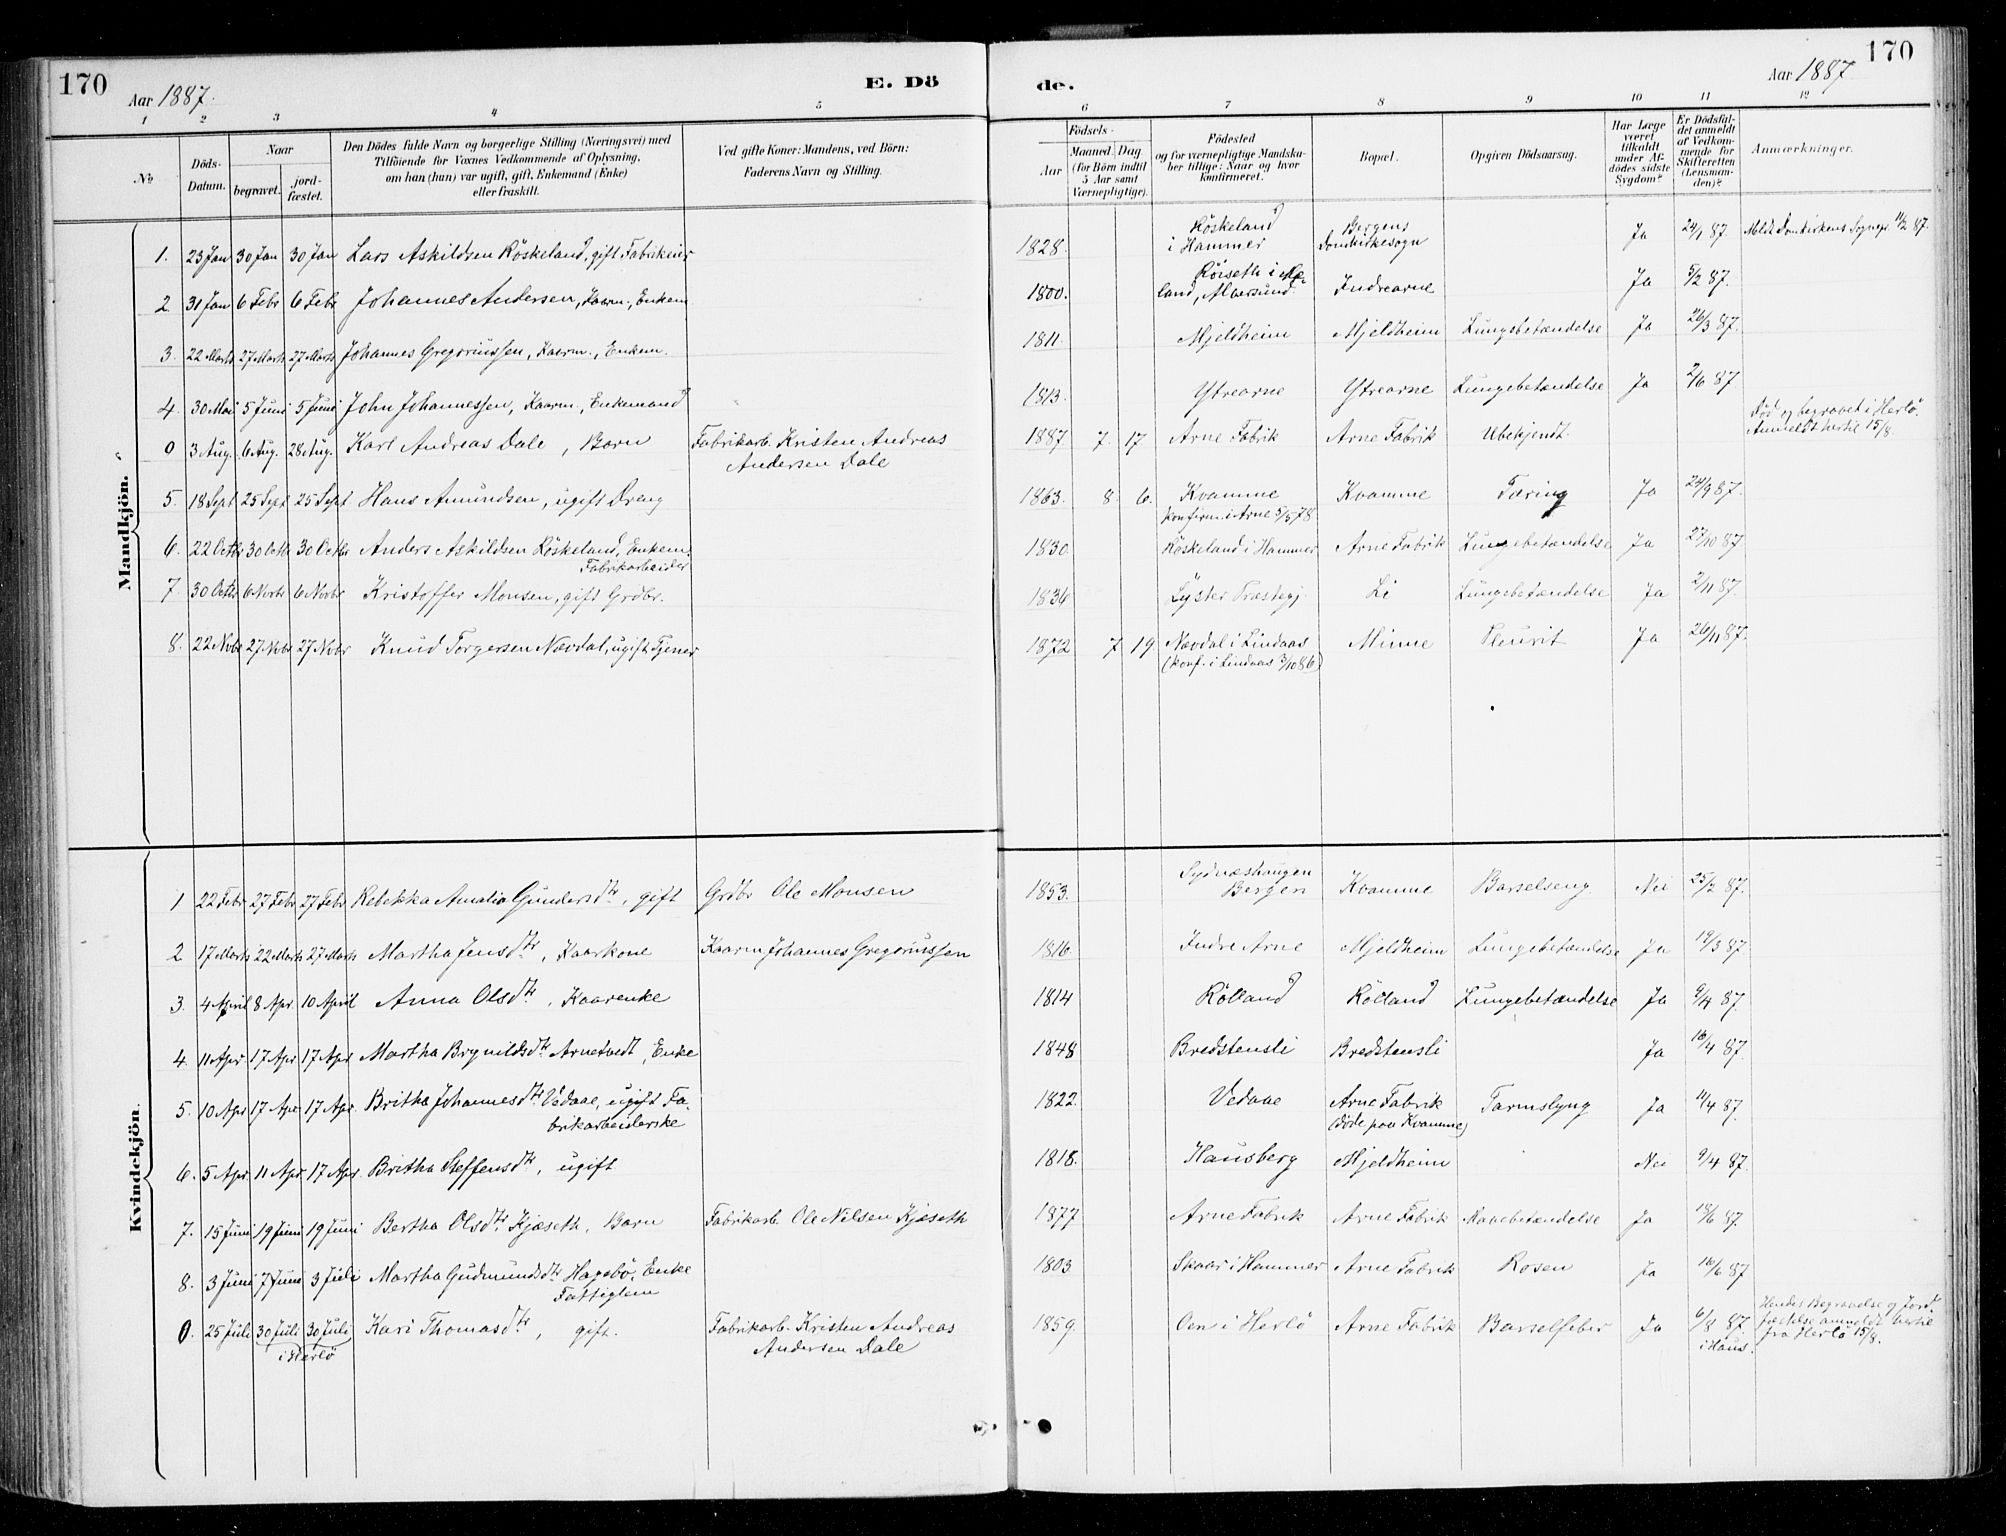 170
Aar 1887.
E. Dö
de.
Aar 1887
170
1 2 3 4 5 6 7 8 9 10 11 12
No
Döds-Datum.
Naar
begravet.
jord-fæstet.
Den Dödes fulde Navn og borgerlige Stilling (Næringsvei) med
Tilföiende for Voxnes Vedkommende af Oplysning,
om han (hun) var ugift, gift, Enkemand (Enke)
eller fraskilt.
Ved gifte Koner: Mandens, ved Börn:
Faderens Navn og Stilling.
Födsels-
Aar
Maaned. Dag
(for Börn indtil
5 Aar samt
Værnepligtige).
Födested
og for værnepligtige Mandska-
ber tillige: Naar og hvor
konfirmeret.
Bopæl.
Opgiven Dödsaarsag.
Har Læge
været
tilkaldt
under Af-
dödes sidste
Sygdom?
Er Dödsfal-
det anmeldt
af Vedkom-
mende for
Skifteretten
(Lensman-
den)?
Anmærkninger.
Mandkjön.
1. 23 Jan 30 Jan 30 Jan Lars Askildsen Röskeland, gift Fabrikeier 1828. Röskeland i Hammer Bergens Domkirkesogn Ja 24/1 87. Meldt Domkirkens Sognepr. 11/2 87.
2. 31 Jan 6 Febr 6 Febr Johannes Andersen, Kaarm., Enkem 1800. Röiseth i Meland, Alversund. Indrearne Ja 5/2 87.
3. 22 Marts 27 Marts 27 Marts Johannes Gregoriussen, Kaarm., Enkem. 1811. Mjeldheim Mjeldheim Lungebetændelse Ja 26/3 87.
4. 30 Mai 5 Juni 5 Juni John Johannessen, Kaarm., Enkemand 1813. Ytrearne Ytrearne Lungebetændelse Ja 2/6 87
0 3 Aug. 6 Aug. 28 Aug. Karl Andreas Dale, Barn Fabrikarb. Kristen Andreas Andersen Dale 1887 7 17 Arne Fabrik Arne Fabrik Ubekjendt. Död og begravet i Herlö. Anmeldt hertil 15/8.
5. 18 Sept 25 Sept 25 Sept Hans Amundsen, ugift Dreng 1863. 8. 6. Kvamme konfirm. i Arne 5/5 78. Kvamme Tæring Ja 24/9 87.
6. 22 Octbr 30 Octb 30 Octbr Anders Askildsen Röskeland, Enkem. Fabrikarbeider 1830. Röskeland i Hammer Arne Fabrik Lungebetændelse Ja 27/10 87
7. 30 Octbr 6 Novbr 6 Novbr Kristoffer Monsen, gift Grdbr. 1836 Lyster Præstegj. Li Lungebetændelse Ja 2/11 87.
8. 22 Novbr 27 Novbr 27 Novbr Knud Torgersen Nævdal, ugift Tjener 1872 7 19 Nævdal i Lindaas (konf. i Lindaas 3/10 86) Minne Pleurit Ja 26/11 87.
Kvindekjön.
1 22 Febr 27 Febr 27 Febr Rebekka Amalia Gundersdtr, gift Grdbr Ole Monsen 1853. Sydnæshaugen Bergen Kvamme Barselseng Nei 25/2 87.
2 17 Marts 22 Marts 27 Marts Martha Jensdtr, Kaarkone Kaarm Johannes Gregoriussen 1816. Indre Arne Mjeldheim Lungebetændelse Ja 19/3 87.
3. 4 April 8 Apr. 10 April Anna Olsdtr, Kaarenke 1814 Rölland Rölland Lungebetændelse Ja 9/4 87.
4. 11 Apr 17 Apr 17 Apr Martha Brynildsdtr Arnetvedt, Enke 1848 Bredstensli Bredstensli Ja 16/4 87.
5. 10 Apr 17 Apr 17 Apr. Britha Johannesdtr Vedaae, ugift Fabrikarbeiderske 1822. Vedaae Arne Fabrik (döde paa Kvamme) Tarmslyng Ja 11/4 87.
6. 5 Apr. 11 Apr 17 Apr. Britha Steffensdtr, ugift 1818. Hausberg Mjeldheim Nei 9/4 87.
7. 15 Juni 19 Juni 19 Juni Bertha Olsdtr Kjæseth. Barn Fabrikarb. Ole Nilsen Kjæseth 1877 Arne Fabrik Arne Fabrik Mavebetændelse Ja 18/6 87.
8. 3 Juni 7 Juni 3 Juli Martha Gudmundsdtr Hagebö, Enke Fattiglem 1803 Skaar i Hammer Arne Fabrik Rosen Ja 16/6 87
0. 25 Juli 30 Juli 30 Juli i Herlö Kari Thomasdtr, gift. Fabrikarb. Kristen Andreas Andersen Dale 1859. Oen i Herlö Arne Fabrik Barselfeber Ja 6/8 87 i Haus. Hendes Begravelse og Jordfæstelse anmeldt hertil fra Herlö 15/8.